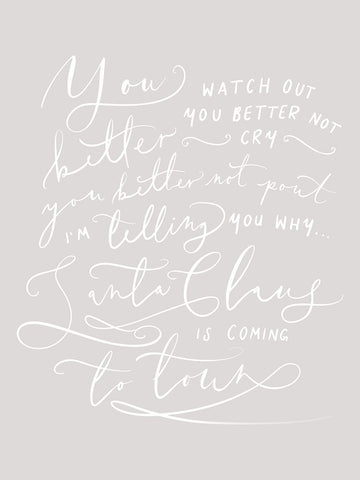 You
better
WATCH OUT
YOU BETTER NOT
CRY
you better not pout
I'M telling YOU WHY...
Santa Claus
IS COMING
to town